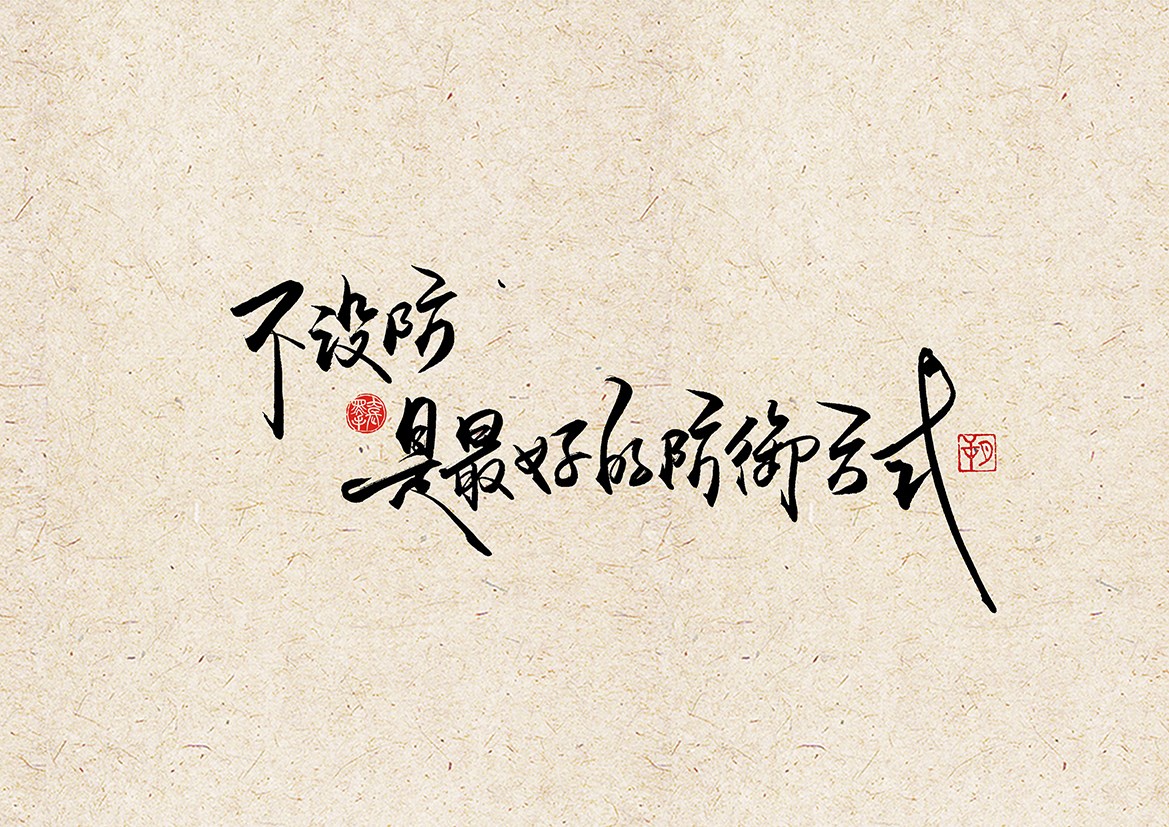 不设防
是最好的防御方式